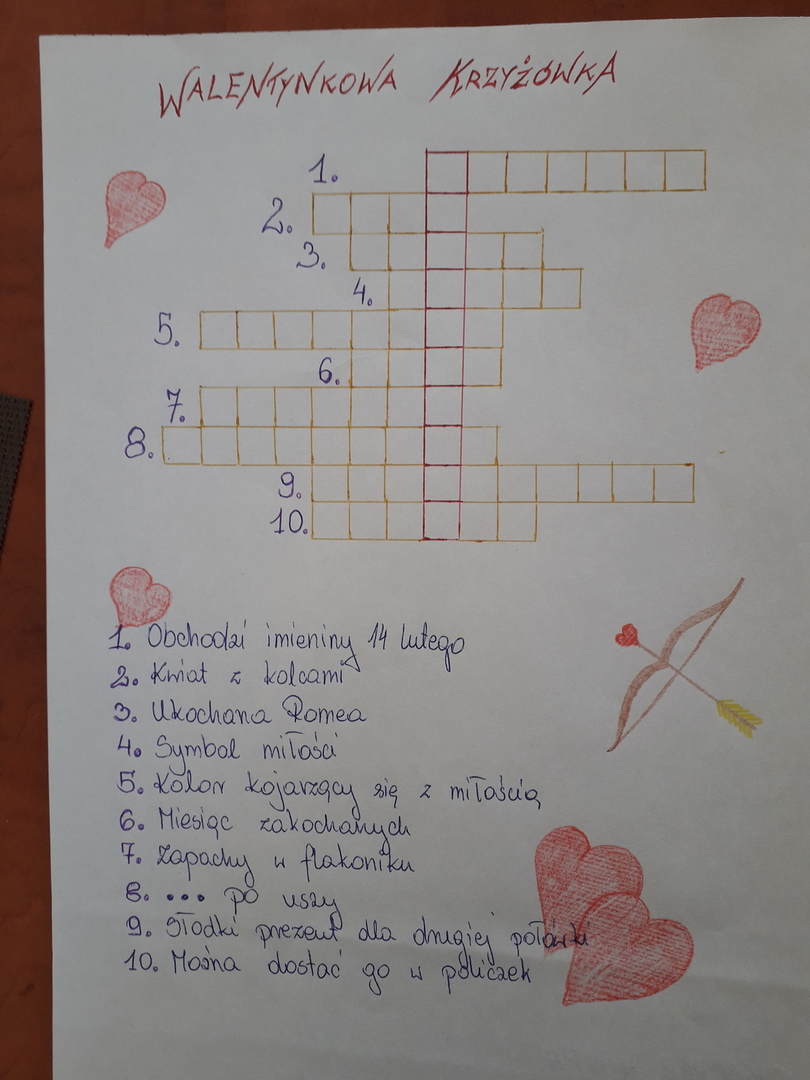 WALENTYNKOWA KRZYŻÓWKA
1.
2.
3.
4.
5.
6.
7.
8.
9.
10.
1. Obchodzi imieniny 14 lutego
2. Kwiat z kolcami
3. Ukochana Romea
4. Symbol miłości
5. Kolor kojarzący się z miłością
6. Miesiąc zakochanych
7. Zapachy w flakoniku
8. ... po uszy
9. Słodki prezent dla drugiej połówki
10. Można dostać go w policzek